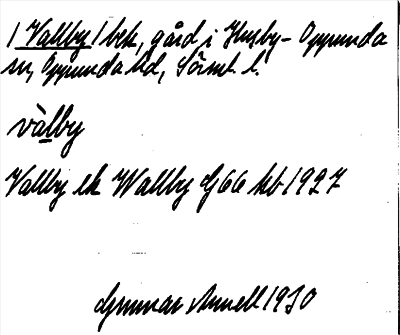 /Vallby/ bek, gård i Husby-Oppunda
sn, Oppunda hd, Sörml. l.
vàlby
Vallby ek Wallby G66 kb 1927
Gunnar Annell 1930